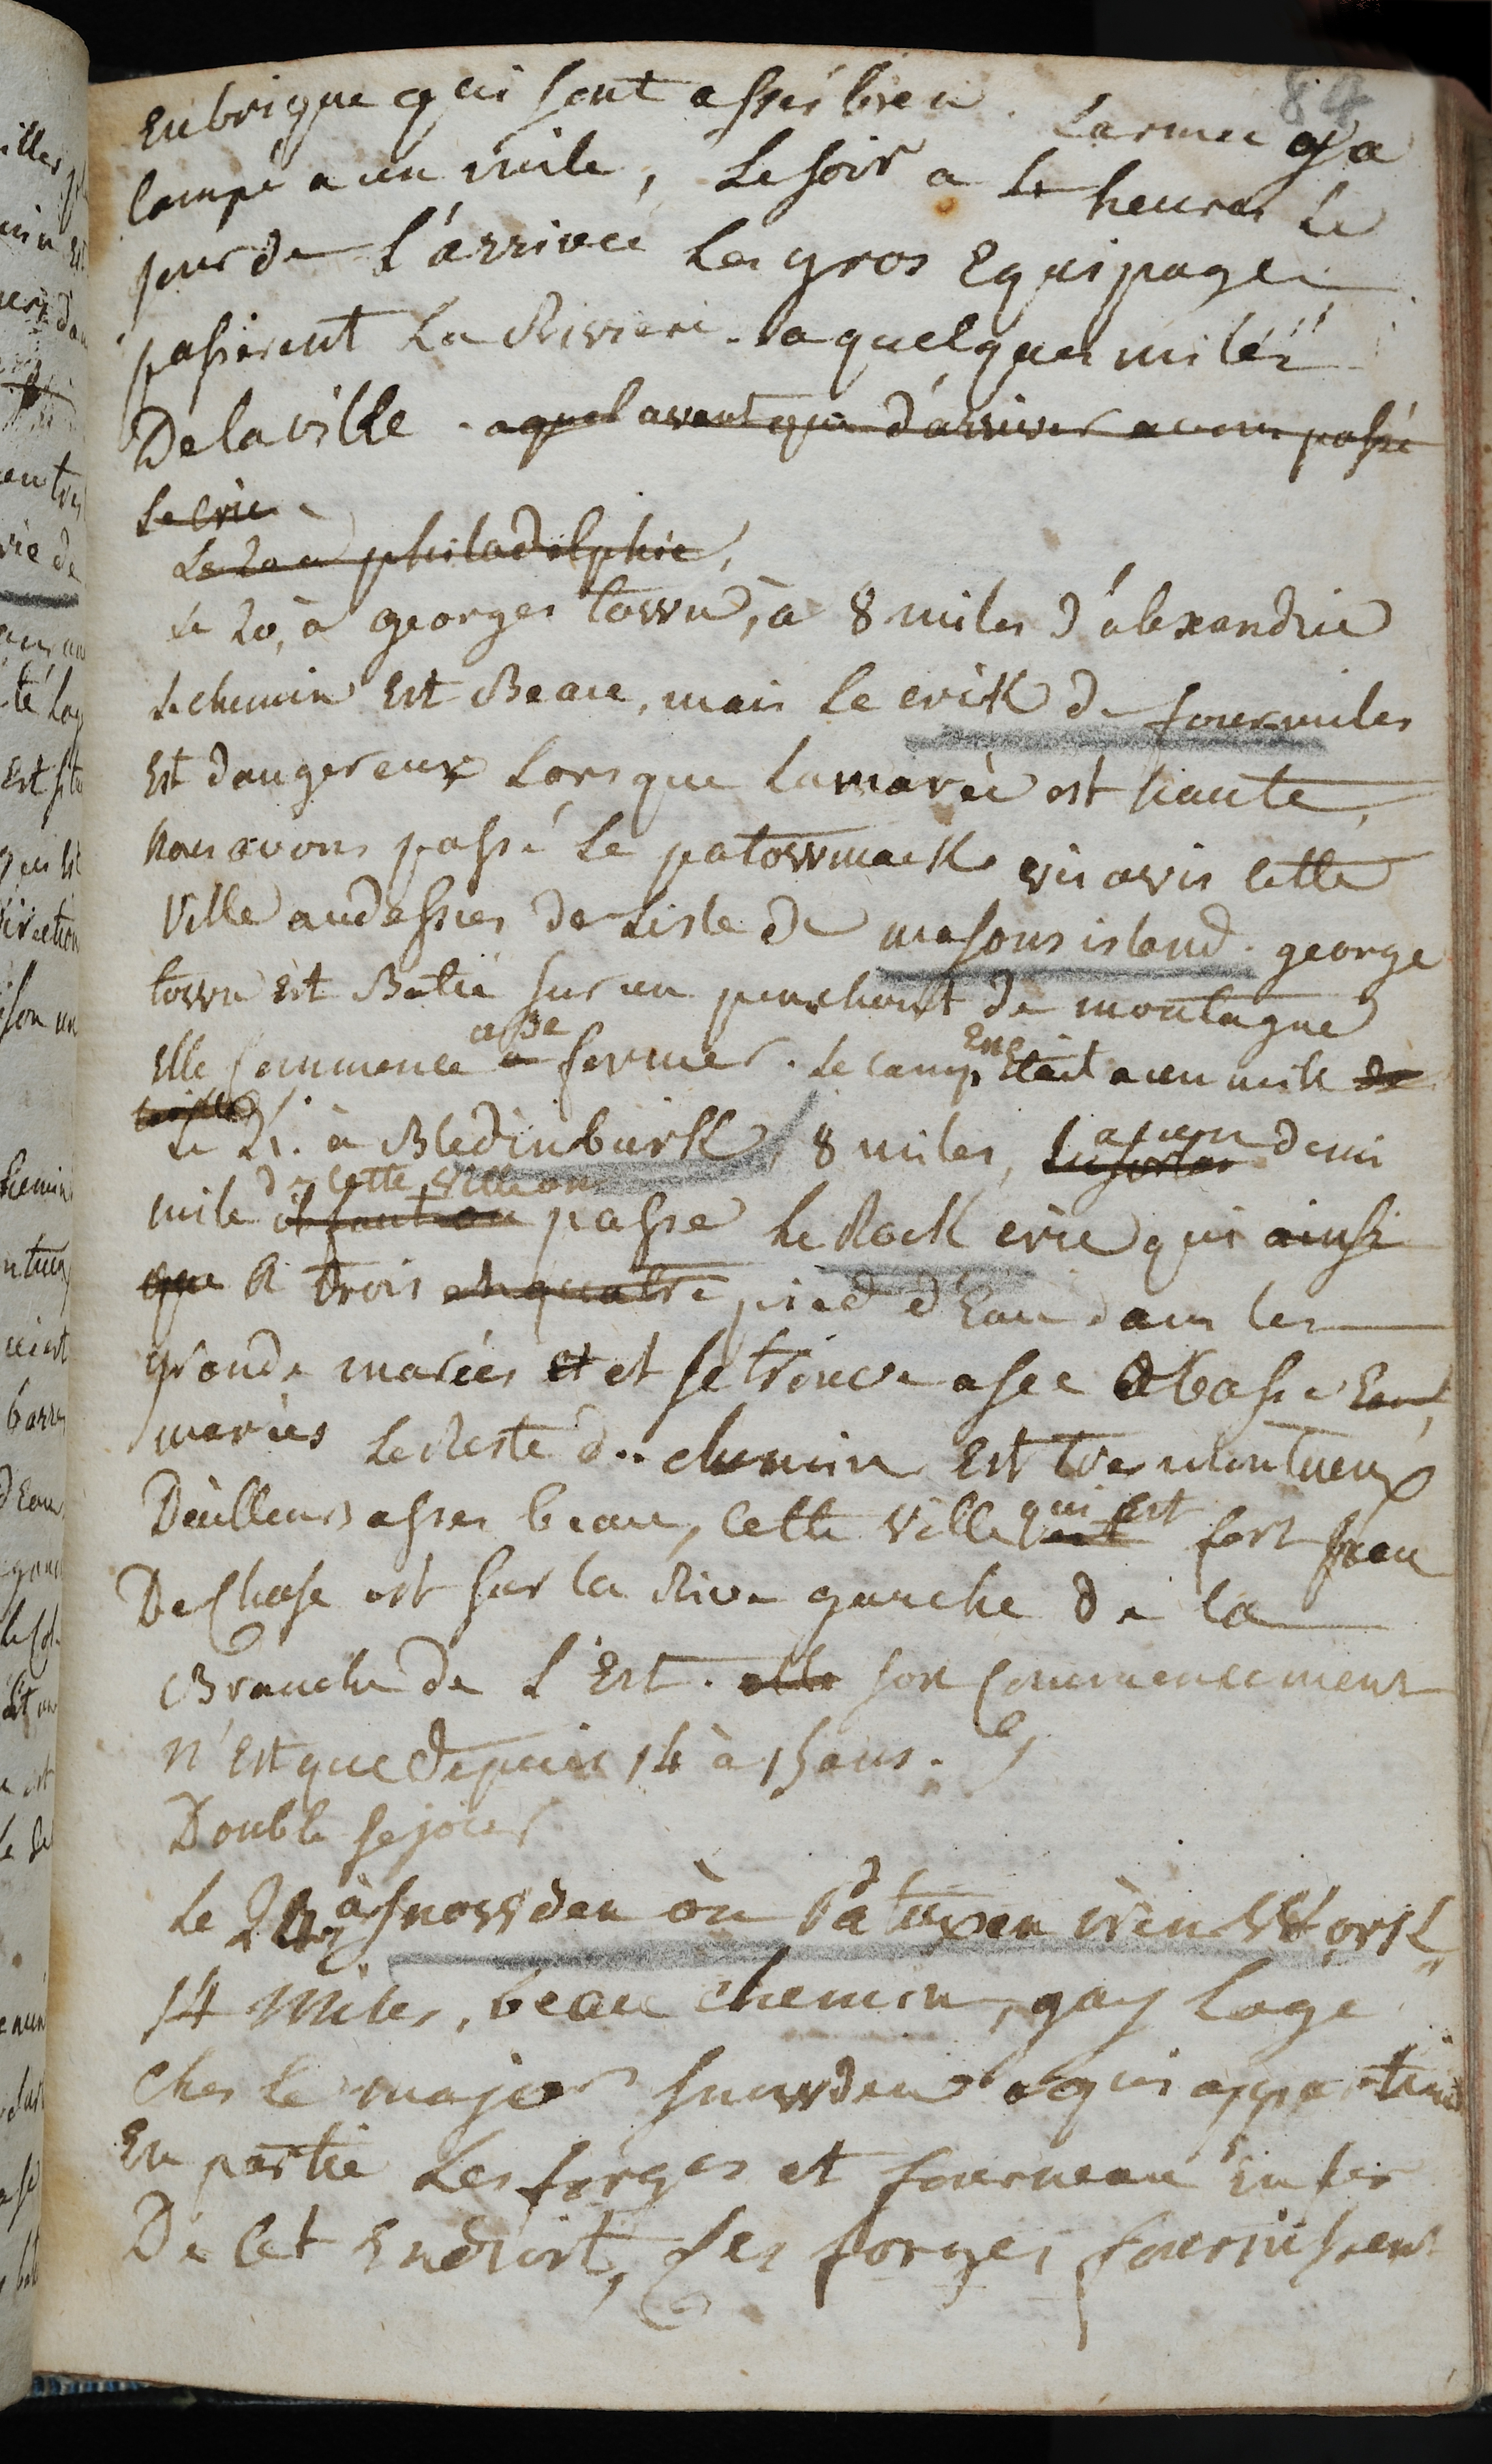 84
En brique qui sont assés bien. Larmee y a
Campé a un mile, Le soir a 4 heures Le
jour de l'arrivée Les gros Equipages
passerent La Riviere a quelques miles
De la ville. a quel avant que d'arriver avoir passé
Le Cric
Le 20 a philadelphie,
Le 20, à georges town, à 8 miles d'alexandrie
Le chemin Est Beau, mais le crik de fourmiles
Est dangereux Lors que La marée est haute,
nous avons passé Le patowmack vis avis cette
Ville audessus de Lisle de masons island. george
town est Batie sur un penchant de montagne
Elle Commence a se former. Le camp En Etait a un mile de
la ville
Le 21. à Bledinburk, 8 miles, a un demi
mile de cette ville on il faut on passe Le Rock cric qui ainsi
que A trois ou quatre pied d'Eau dans les
grande marées et et se trouve a sec a basse Eau
marées Le Reste du chemin Est tres montueux
D'ailleurs asses beau, Cette Ville qui est est fort peu
De Chose est sur la Rive gauche de la
Branche de L'Est. elle son Commencement
n'Est que depuis 14 à 15 ans.
Double sejour
Le 24 à Snowden ou Patuxen iren Work
14 Miles, beau chemin, jay Loge
Ches Le major Snowden a qui appartient
En partie Les forges et fourneau En fer
De Cet Endroit, ses forges fournissent